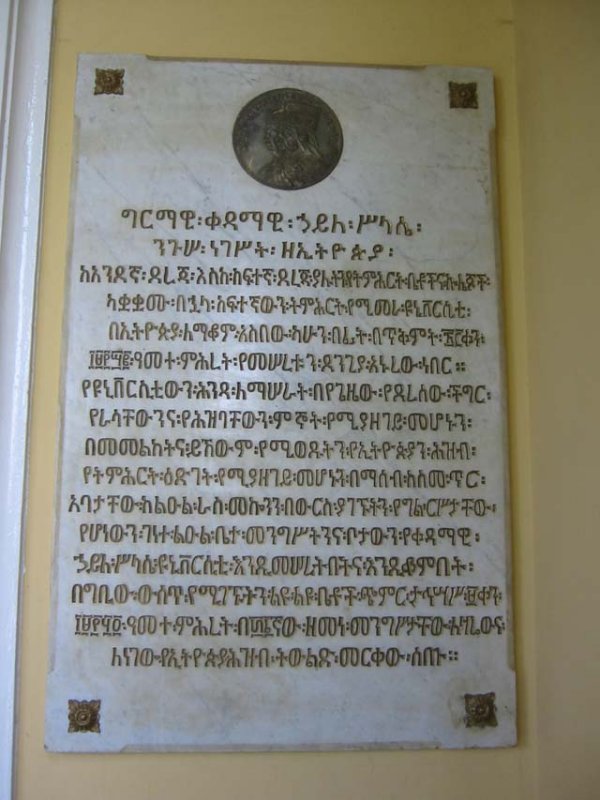 ግርማዊ፡ቀዳማዊ፡ኃይለ፡ሥላሴ፡
ንጉሠ፡ነገሥት፡ዘኢትዮጵያ፡
ከአንደኛ፡ደረጃ፡እስከ፡ከፍተኛ፡ደረጃ፡ያሉትን፡የትምህርት፡ቤቶችና፡ኮሌጆች፡
ካቋቋሙ፡በኋላ፡ከፍተኛውን፡ትምህርት፡የሚመራ፡ዩኒቨርሲቲ፡
በኢትዮጵያ፡ለማቆም፡አስበው፡ካሁን፡በፊት፡በጥቅምት፡ቀን፡
፲፱፻፵፪፡ዓመተ፡ምሕረት፡የመሠረቱን፡ደንጊያ፡አኑረው፡ነበር።
የዩኒቨርስቲውን፡ሕንጻ፡ለማሠራት፡በየጊዜው፡የደረሰው፡ችግር፡
የራሳቸውንና፡የሕዝባቸውን፡ምኞት፡የሚያዘገይ፡መሆኑን፡
በመመልከትና፡ይኸውም፡የሚወዱትን፡የኢትዮጵያን፡ሕዝብ፡
የትምህርት፡ዕድገት፡የሚያዘገይ፡መሆኑን፡በማሰብ፡ከስመ፡ጥር፡
አባታቸው፡ከልዑል፡ራስ፡መኰንን፡በውርስ፡ያገኙትን፡የግል፡ርሥታቸው፡
የሆነውን፡ገነተ፡ልዑል፡ቤተ፡መንግሥትንና፡ቦታውን፡የቀዳማዊ፡
ኃይለ፡ሥላሴ፡ዩኒቨርስቲ፡እንዲመሠረትበትና፡እንዲቆምበት፡
በግቢው፡ውስጥ፡የሚገኙትን፡ልዩ፡ልዩ፡ቤቶች፡ጭምር፡ታኅሣሥ፡ቀን፡
፲፱፻፶፬፡ዓመተ፡ምሕረት፡በ፴፪ኛው፡ዘመነ፡መንግሥታቸው፡ለዛሬውና፡
ለነገው፡የኢትዮጵያ፡ሕዝብ፡ትውልድ፡መርቀው፡ሰጡ።